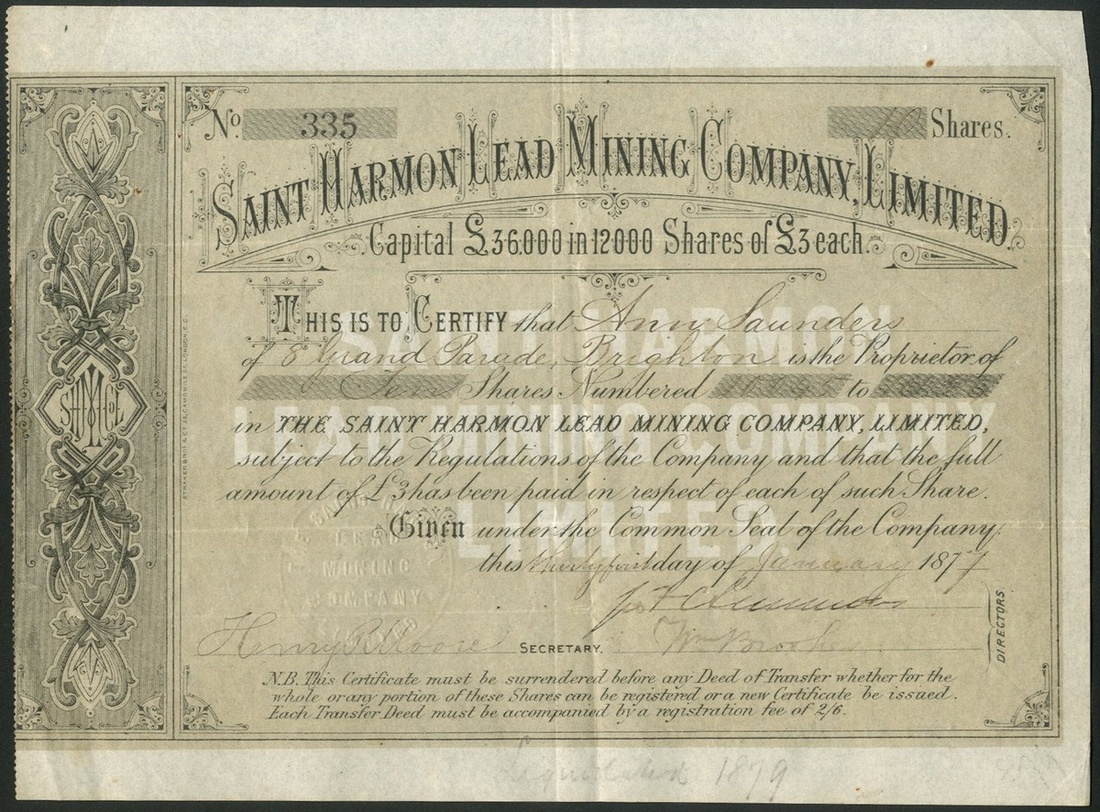 No. 335
Shares.
SAINT HARMON LEAD MINING COMPANY, LIMITED.
Capital £36.000 in 12000 Shares of £3 each.
THIS IS TO CERTIFY that Ann Saunders
of 8 Grand Parade, Brighton is the Proprietor of
Ten Shares Numbered to
in THE SAINT HARMON LEAD MINING COMPANY, LIMITED,
subject to the Regulations of the Company and that the full
amount of £3 has been paid in respect of each of such Share.
Given under the Common Seal of the Company
this thirty first day of January 1877
Henry R Moore SECRETARY. Wm
DIRECTORS
N.B. This Certificate must be surrendered before any Deed of Transfer whether for the
whole or any portion of these Shares can be registered or a new Certificate be issued.
Each Transfer Deed must be accompanied by a registration fee of 2/6.
SAINT HARMON
LEAD MINING COMPANY
LIMITED.
LEAD
MINING
COMPANY
1879